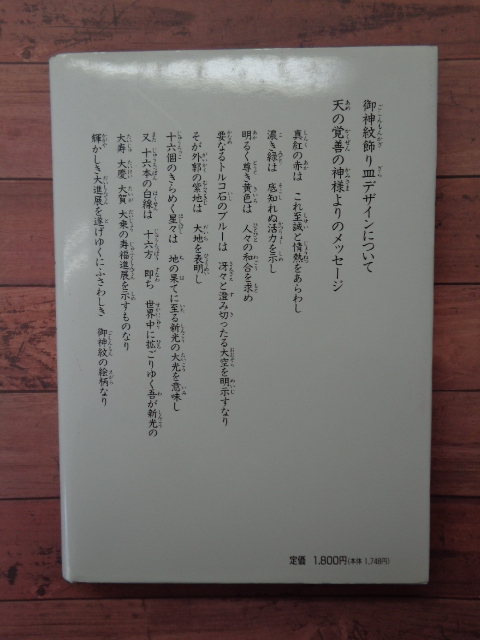 御神紋飾り皿デザインについて
天の覚善の神様よりのメッセージ
真紅の赤は　これ至誠と情熱をあらわし
濃き緑は　感知れぬ活力を示し
明るく尊き黄色は　人々の和合を求め
要なるトルコ石のブルーは　冴々と澄み切ったる大空を明示すなり
そが外郭の紫地は　大地を表明し
十六個のきらめく星々は　地の果てに至る新光の大光を意味し
又　十六本の白線は　十六方　即ち　世界中に拡ごりゆく吾が新光の
大寿　大慶　大賀　大衆の寿福進展を示すものなり
輝かしき大進展を遂げゆくにふさわしき　御神紋の絵柄なり
定価　1,800円（本体 1,748円）